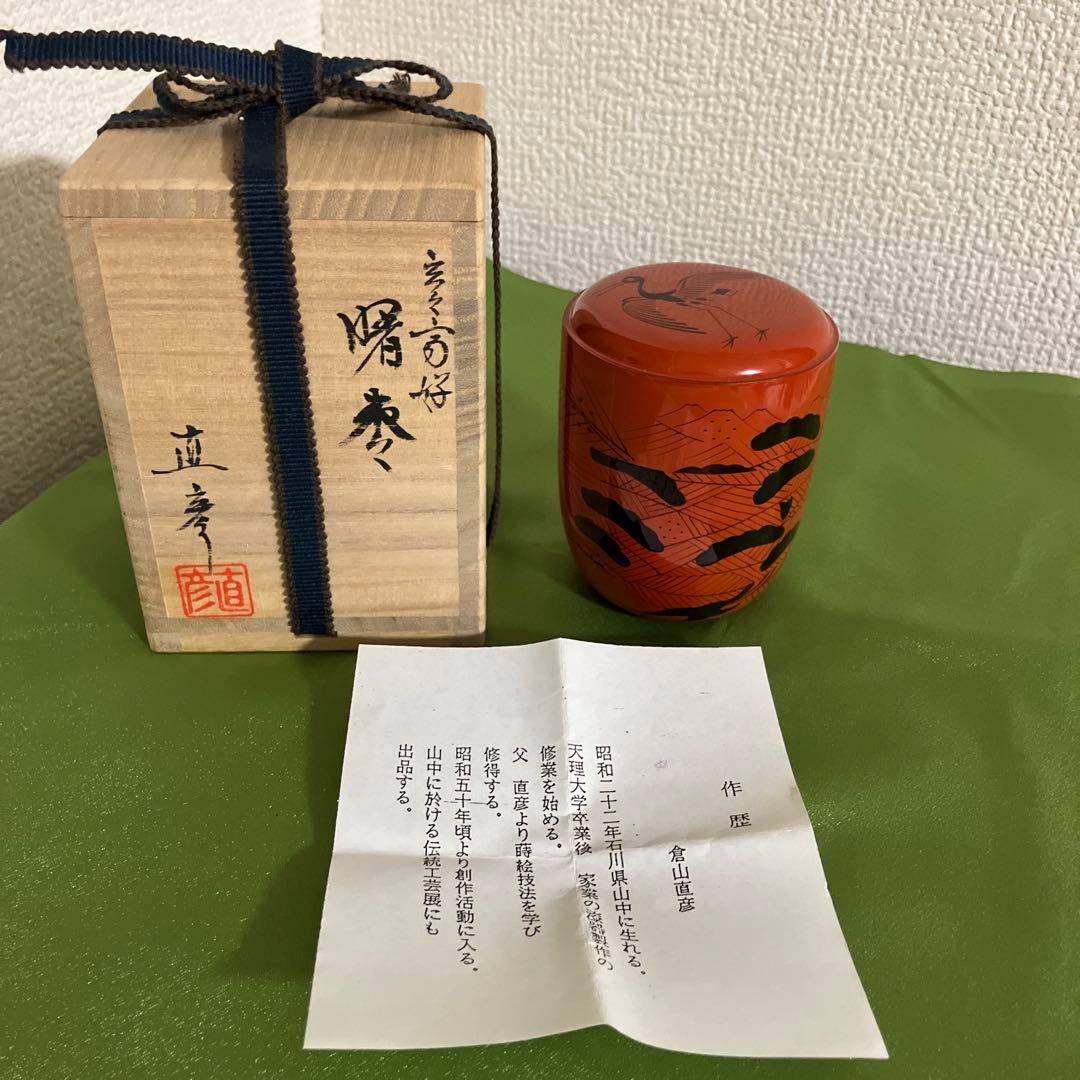 玄々斎好
曙棗
直彦
直彦
作歴
倉山直彦
昭和二十二年石川県山中に生れる。
天理大学卒業後 家業の漆器製作の
修業を始める。
父 直彦より蒔絵技法を学び
修得する。
昭和五十年頃より創作活動に入る。
山中に於ける伝統工芸展にも
出品する。